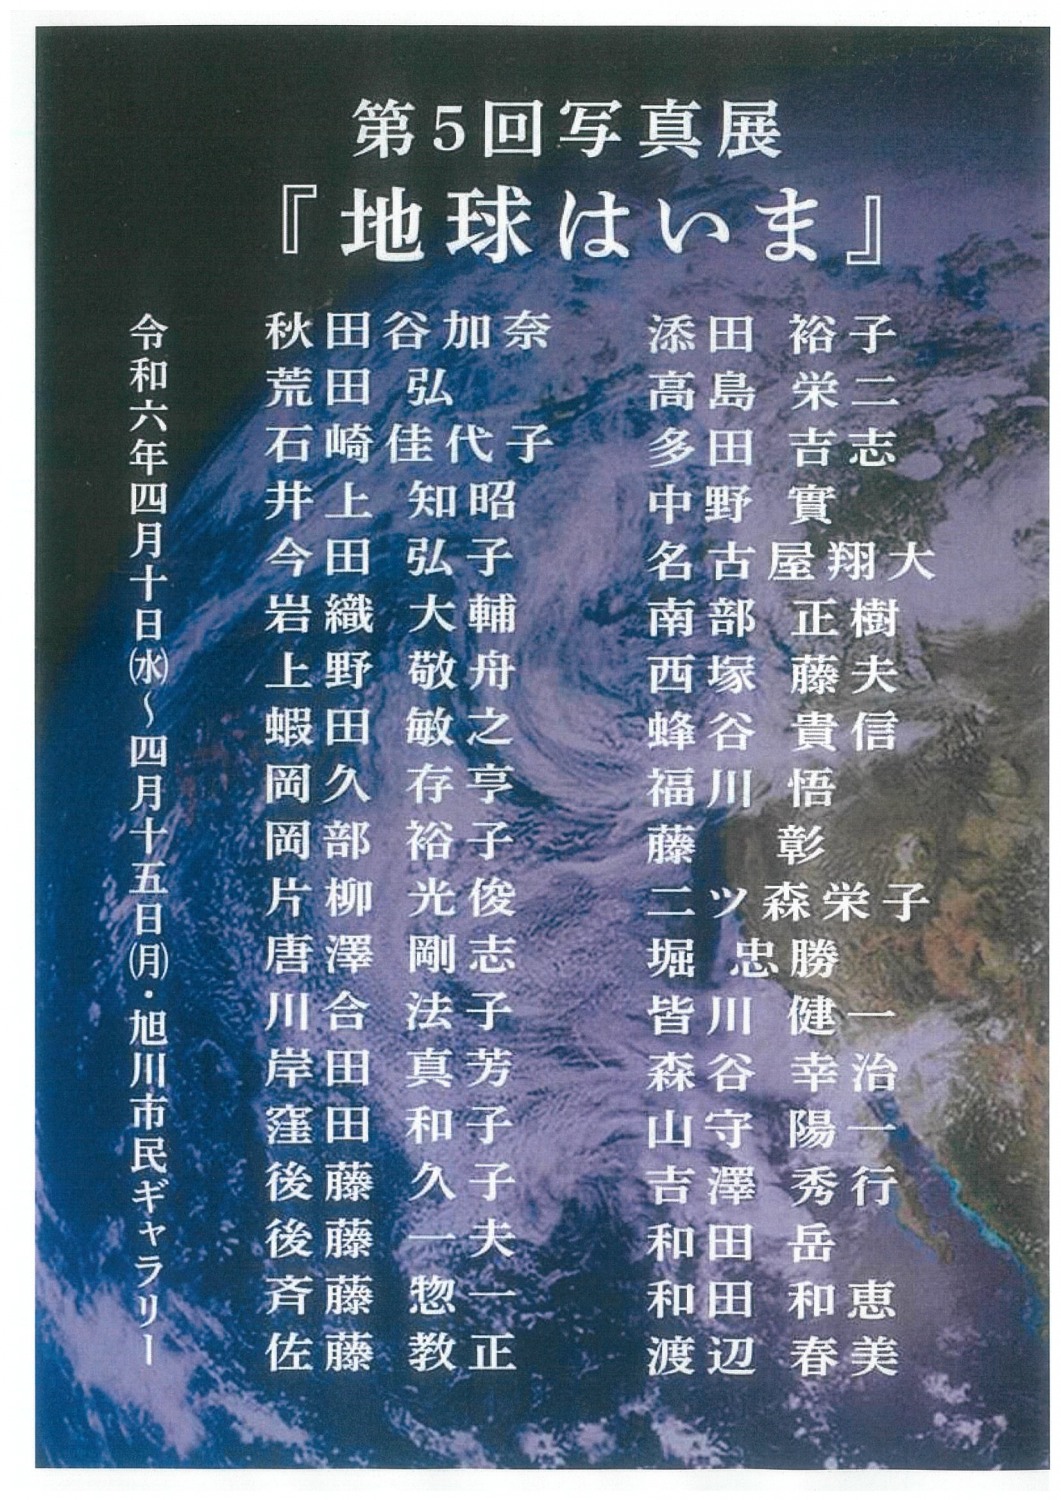 第5回写真展
『地球はいま』
秋田谷加奈
荒田 弘
石崎佳代子
井上 知昭
今田 弘子
岩織 大輔
上野 敬舟
蝦田 敏之
岡久 存亨
岡部 裕子
片柳 光俊
唐澤 剛志
川合 法子
岸田 真芳
窪田 和子
後藤 久子
後藤 一夫
斉藤 惣一
佐藤 教正
添田 裕子
高島 栄二
多田 吉志
中野 實
名古屋翔大
南部 正樹
西塚 藤夫
蜂谷 貴信
福川 悟
藤 彰
二ツ森栄子
堀 忠勝
皆川 健一
森谷 幸治
山守 陽一
吉澤 秀行
和田 岳
和田 和恵
渡辺 春美
令和六年四月十日㈬〜四月十五日㈪・旭川市民ギャラリー